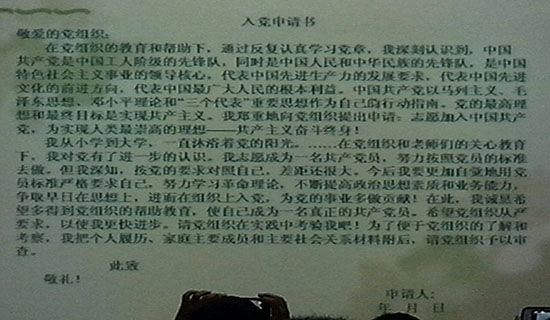 入党申请书
敬爱的党组织:
在党组织的教育和帮助下，通过反复认真学习党章，我深刻认识到，中国
共产党是中国工人阶级的先锋队，同时是中国人民和中华民族的先锋队，是中国
特色社会主义事业的领导核心，代表中国先进生产力的发展要求，代表中国先进
文化的前进方向，代表中国最广大人民的根本利益。中国共产党以马列主义、毛
泽东思想、邓小平理论和“三个代表”重要思想作为自己的行动指南。党的最高理
想和最终目标是实现共产主义。我郑重地向党组织提出申请：志愿加入中国共产
党，为实现人类最崇高的理想——共产主义奋斗终身！
我从小学到大学，一直沐浴着党的阳光。……在党组织和老师们的关心教育
下，我对党有了进一步的认识。我志愿成为一名共产党员，努力按照党员的标准
去做。但我深知，按党的要求对照自己，差距还很大。今后我要更加自觉地用党
员标准严格要求自己，努力学习革命理论，不断提高政治思想素质和业务能力，
争取早日在思想上，进而在组织上入党，为党的事业多做贡献！在此，我诚恳希
望多得到党组织的帮助教育，使自己成为一名真正的共产党员。希望党组织从严
要求，以使我更快进步。请党组织在实践中考验我吧！为了便于党组织的了解和
考察，我把个人履历、家庭主要成员和主要社会关系材料附后，请党组织予以审
查。
此致
敬礼！
申请人:
年 月 日